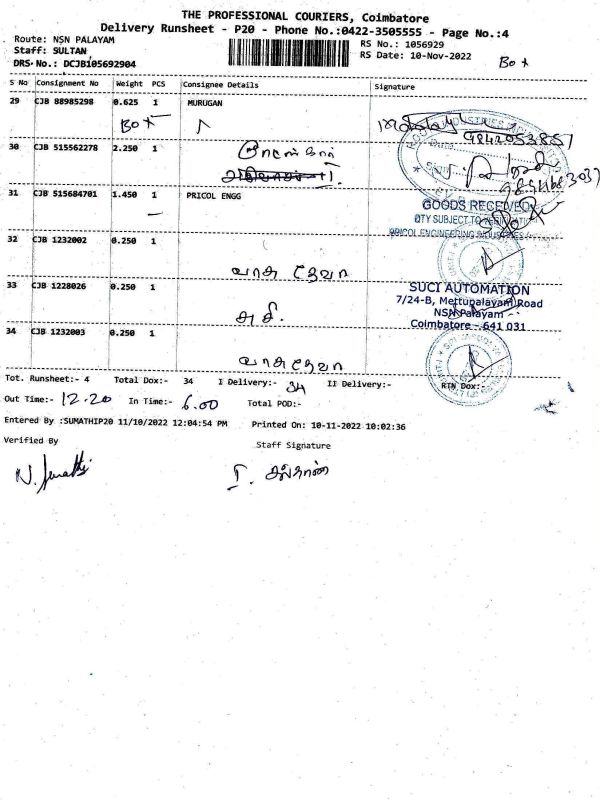 THE PROFESSIONAL COURIERS, Coimbatore
Delivery Runsheet - P20 - Phone No.:0422-3505555 - Page No.:4
Route: NSN PALAYAM
RS No.: 1056929
Staff: SULTAN
RS Date: 10-Nov-2022
DRS No.: DCJB105692904
Box
S No Consignment No Weight PCS Consignee Details Signature
29 CJB 88985298 0.625 1 MURUGAN
Box
9842053851
30 CJB 515562278 2.250 1
31 CJB 515684701 1.450 1 PRICOL ENGG
GOODS RECEIVED
QTY SUBJECT TO
PRICOL ENGINEERING INDUSTRIES
32 CJB 1232002 0.250 1
வாசு தேவா
33 CJB 1228026 0.250 1
சசி.
SUCI AUTOMATION
7/24-B, Mettupalayam Road
NSN Palayam
Coimbatore - 641 031
34 CJB 1232003 0.250 1
வாசு தேவா
Tot. Runsheet:- 4 Total Dox:- 34 I Delivery:- 34 II Delivery:- RTN Dox:-
Out Time:- 12.20 In Time:- 6.00 Total POD:-
Entered By :SUMATHIP20 11/10/2022 12:04:54 PM Printed On: 10-11-2022 10:02:36
Verified By Staff Signature